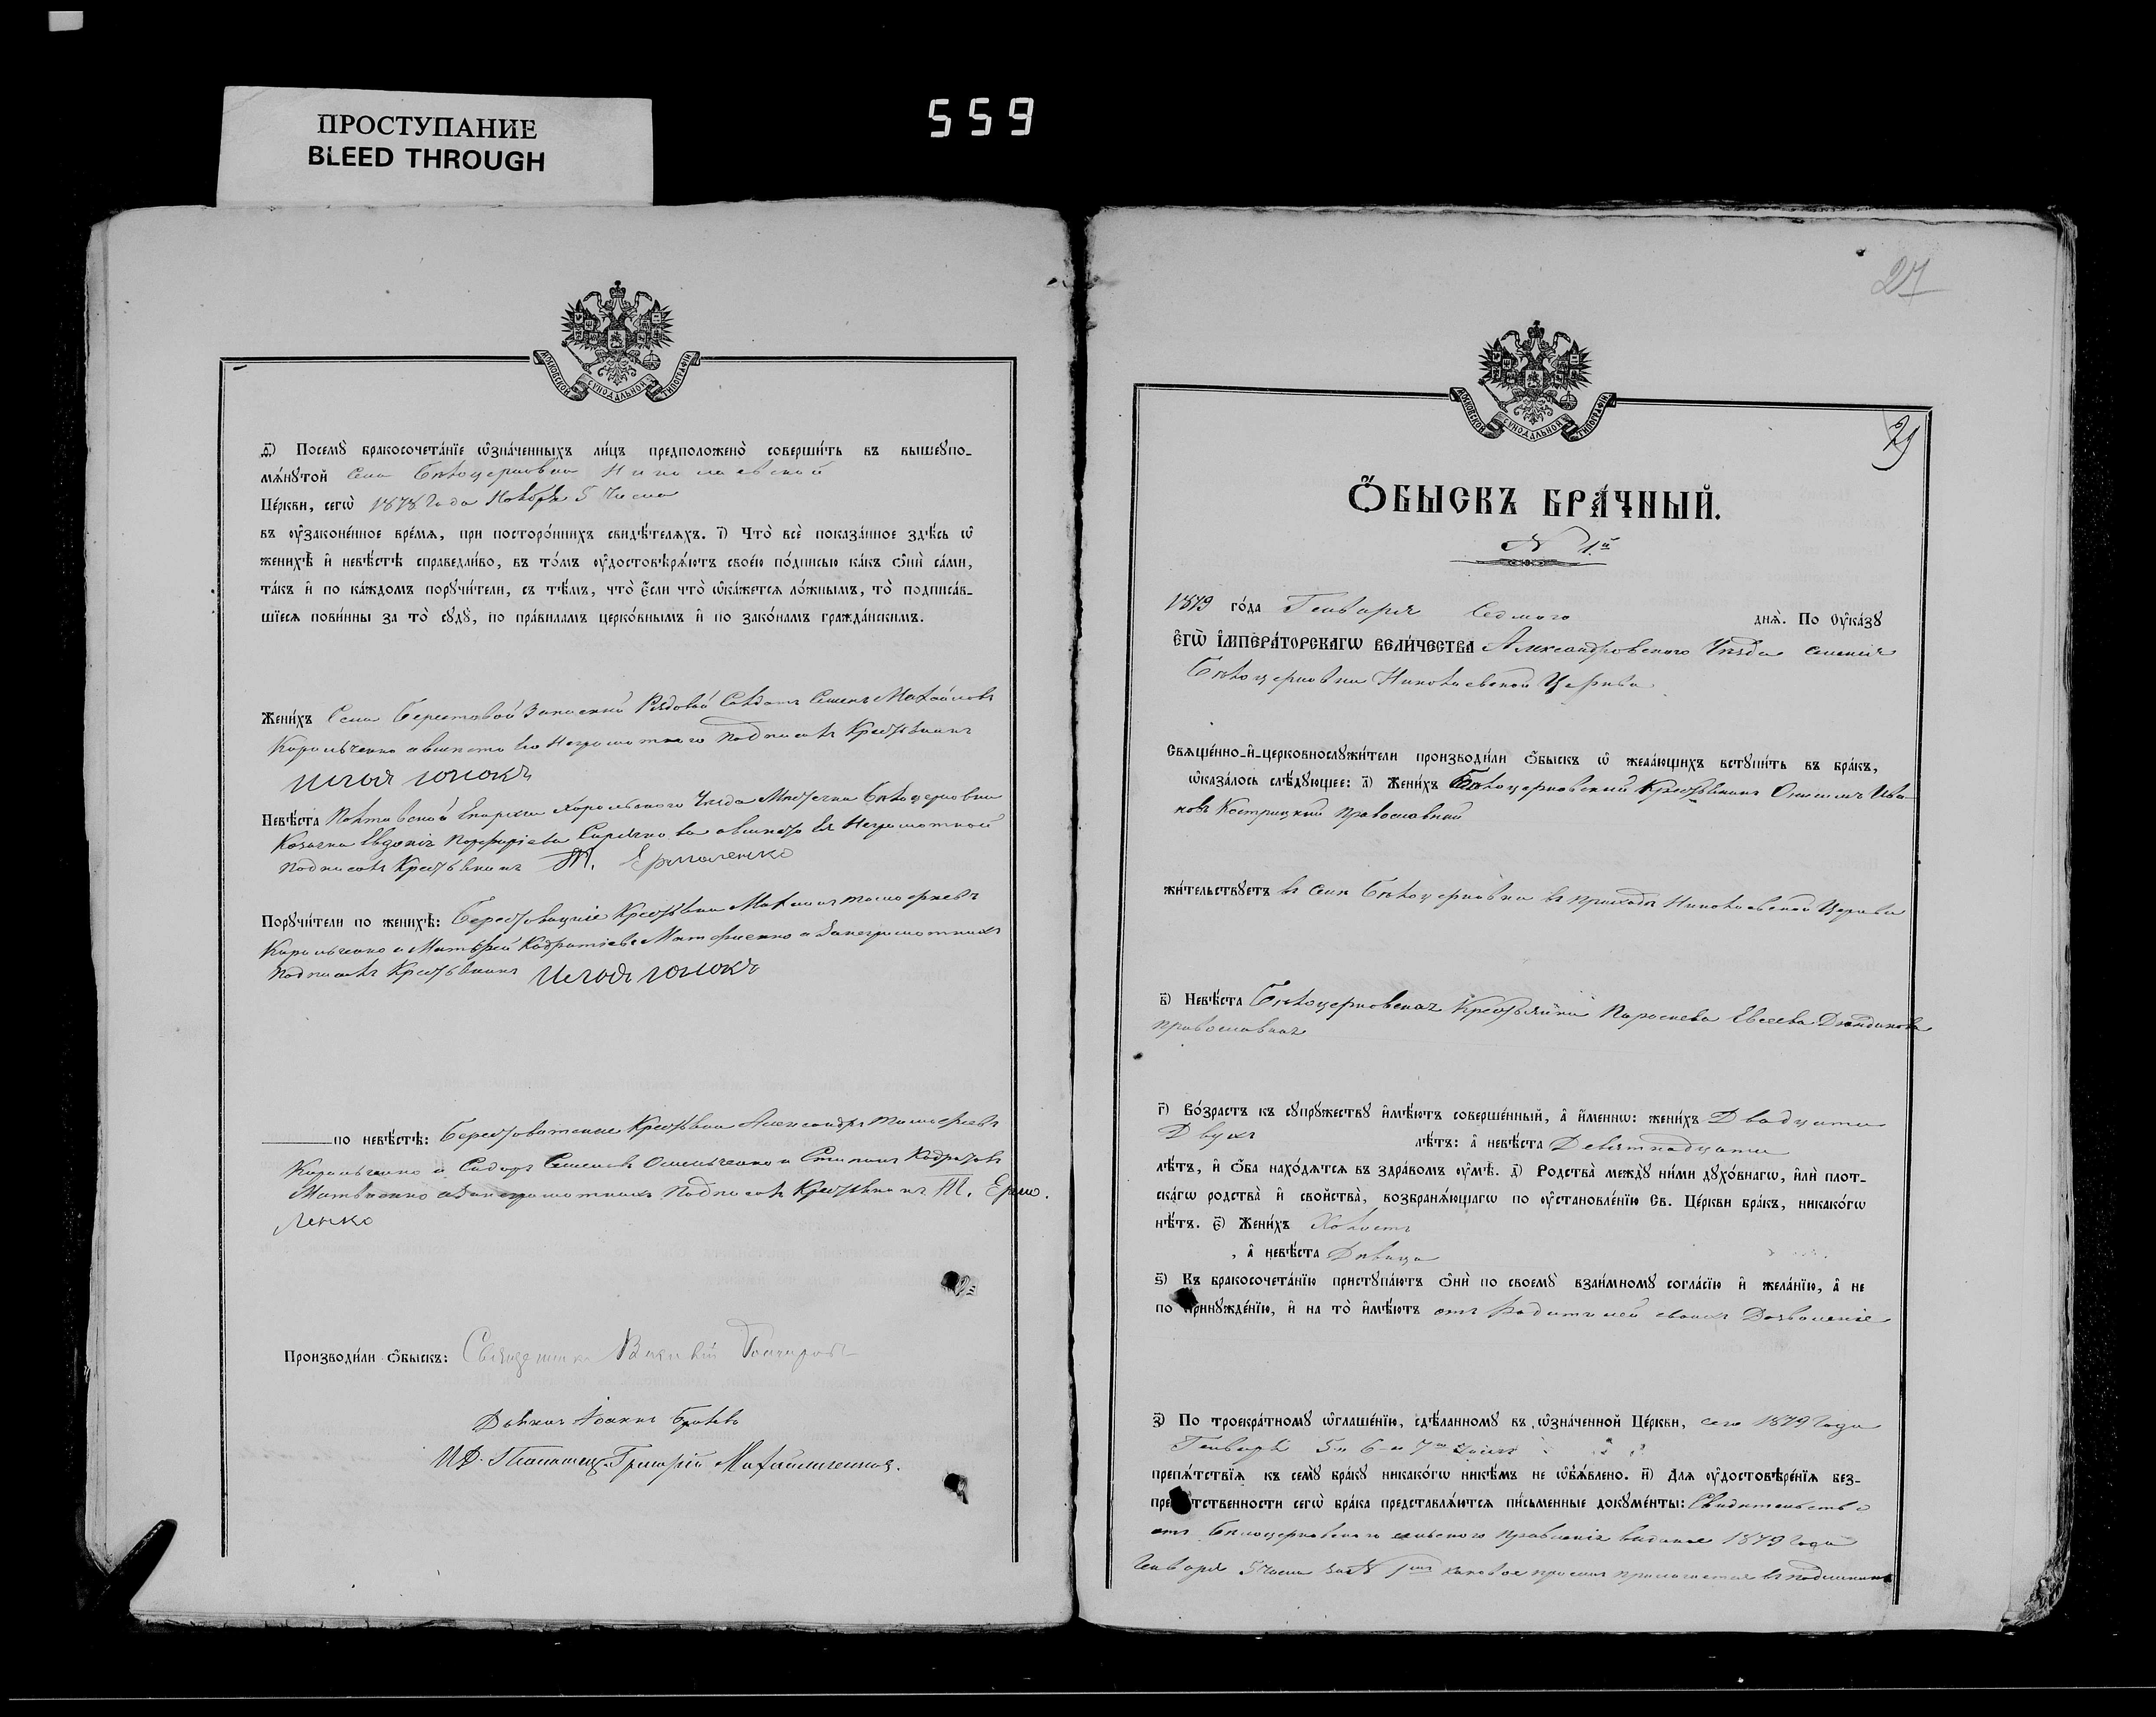 559
ПРОСТУПАНИЕ
BLEED THROUGH
МОСКОВСКОЙ СѴНОДАЛЬНОЙ ТИПОГРАФІИ
д҃) Посемꙋ̀ бракосочета́нїе ѡ҆зна́ченныхъ ли́цъ предположено̀ соверши́ть въ вышеꙋпо-
мѧ́нꙋтой Села Бѣлоцерковки Николаевской
Це́ркви, сегѡ̀ 1878 Года Ноября 5 Числа
въ ᲂу҆законе́нное вре́мѧ, при посторо́ннихъ свидѣ́телѧхъ. і҃) Что̀ всѐ показа́нное здѣ́сь ѡ҆
женихѣ̀ и҆ невѣ́стѣ справедли́во, въ то́мъ ᲂу҆достовѣрѧ́ютъ свое́ю по́дписью ка́къ ѻ҆нѝ са́ми,
та́къ и҆ по ка́ждомъ порꙋчи́тели, съ тѣ́мъ, что̀ є҆́сли что̀ ѡ҆ка́жетсѧ ло́жнымъ, то̀ подписа́в-
шїесѧ пови́нны за то̀ сꙋдꙋ̀, по пра́виламъ церко́внымъ и҆ по зако́намъ гражда́нскимъ.
Жени́хъ Села Берестовой Запасный Рядовой Солдатъ Семенъ Михайловъ
Кирильченко а вместо его Неграмотного подписалъ Крестьянинъ
Илья Юнокъ
Невѣ́ста Полтавской Епархіи Хорольского Уезда Мястечка Бѣлоцерковки
Козачка Евдокія Порфиріева а вместо Ея Неграмотной
подписалъ Крестьянинъ Т. Ермоленко
Порꙋчи́тели по женихѣ̀: Берестовацкіе Крестьяни Михаилъ Тимофеевъ
Кирильченко и Матвѣй Кодратіевъ Матвиенко а За неграмотныхъ
подписалъ Крестьянинъ Илья Юнокъ
по невѣ́стѣ: Крестьяни Александръ Тимофеевъ
Кирильченко и Сидоръ Семеновъ Омельченко и Степанъ Кодратовъ
Матвиенко а За неграмотныхъ подписалъ Крестьянинъ Т. Ермо.
ленко
Производи́ли ѻ҆́быскъ: Священникъ Василій Гончаровъ
Іоаннъ
И Д. Григорій
27
МОСКОВСКОЙ СѴНОДАЛЬНОЙ ТИПОГРАФІИ
29
Ѻ҆́БЫСКЪ БРА́ЧНЫЙ.
N 1й
1879 го́да Генваря Седмого днѧ̀. По ᲂу҆ка́зꙋ
Є҆ГѠ̀ И҆МПЕРА́ТОРСКАГѠ ВЕЛИ́ЧЕСТВА Александровского Уезда селения
Бѣлоцерковки Николаевской Церкви
Свѧще́нно-и҆-церковнослꙋжи́тели производи́ли ѻ҆́быскъ ѡ҆ жела́ющихъ встꙋпи́ть въ бра́къ,
ѡ҆каза́лось слѣ́дꙋющее: а҃) Жени́хъ Бѣлоцерковский Крестьянинъ Онисимъ Ива-
новъ Кострицкий православный
жи́тельствꙋетъ въ селе Бѣлоцерковки въ приходѣ Николаевской Церкви
в҃) Невѣ́ста Бѣлоцерковская Крестьянка Параскева Евсеева
православная
г҃) Во́зрастъ къ сꙋпрꙋ́жествꙋ и҆мѣ́ютъ соверше́нный, а҆ и҆́меннѡ: жени́хъ Двадцати
Двухъ лѣ́тъ: а҆ невѣ́ста Девятнадцати
лѣ́тъ, и҆ ѻ҆́ба нахо́дѧтсѧ въ здра́вомъ ᲂу҆мѣ̀. д҃) Родства̀ междꙋ̀ ни́ми дꙋхо́внагѡ, и҆лѝ плот-
ска́гѡ родства̀ и҆ сво́йства̀, возбранѧ́ющагѡ по ᲂу҆становле́нїю Св. Це́ркви бра́къ, никако́гѡ
нѣ́тъ. є҃) Жени́хъ Холостъ
, а҆ невѣ́ста Дѣвица
ѕ҃) Къ бракосочета́нїю пристꙋпа́ютъ ѻ҆нѝ по своемꙋ̀ взаи́мномꙋ согла́сїю и҆ жела́нїю, а҆ не
по принꙋжде́нїю, и҆ на то̀ и҆мѣ́ютъ отъ Родителей своихъ Дозволение
з҃) По троекра́тномꙋ ѡ҆глаше́нїю, сдѣ́ланномꙋ въ ѡ҆зна́ченной Це́ркви, сего 1879 Года
Генваря 5 и 6 и 7го числъ
препѧ́тствїѧ къ семꙋ̀ бра́кꙋ никако́гѡ никѣ́мъ не ѡ҆б̾ѧ́влено. и҃) Длѧ ᲂу҆достовѣре́нїѧ без-
препѧ́тственности сегѡ̀ бра́ка представлѧ́ютсѧ пи́сьменные докꙋме́нты: Свидительство
отъ Белоцерковского сельского правления виданое 1879 Года
Генваря 5 числа за N 1мъ каковое присемъ прилагается въ подлинникѣ